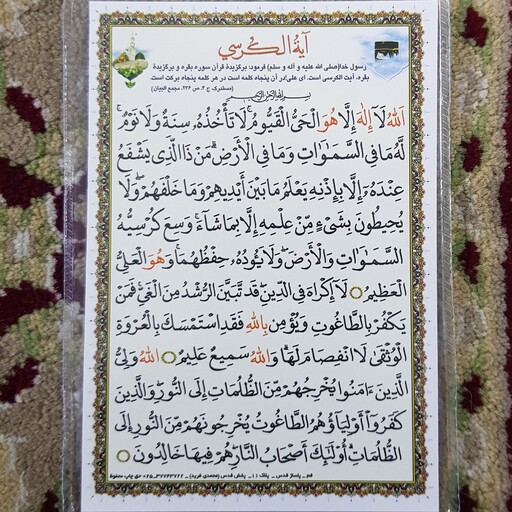 آیةُ الکُرسي
رسول خدا(صلی الله علیه و آله و سلم) فرمود: برگزیدهٔ قرآن سوره بقره و برگزیدهٔ
بقره، آیت الکرسی است. ای علی!در آن پنجاه کلمه است در هر کلمه پنجاه برکت است.
(مستدرک، ج ۴، ص ۳۳۶، مجمع البیان)
بِسمِ اللهِ الرَّحمنِ الرَّحیمِ
اَللهُ لَا إِلٰهَ إِلَّا هُوَ الْحَيُّ الْقَيُّومُ لَا تَأْخُذُهُ سِنَةٌ وَلَا نَوْمٌ
لَّهُ مَا فِي السَّمَاوَاتِ وَمَا فِي الْأَرْضِ مَن ذَا الَّذِي يَشْفَعُ
عِندَهُ إِلَّا بِإِذْنِهِ يَعْلَمُ مَا بَيْنَ أَيْدِيهِمْ وَمَا خَلْفَهُمْ وَلَا
يُحِيطُونَ بِشَيْءٍ مِّنْ عِلْمِهِ إِلَّا بِمَا شَاءَ وَسِعَ كُرْسِيُّهُ
السَّمَاوَاتِ وَالْأَرْضَ وَلَا يَئُودُهُ حِفْظُهُمَا وَهُوَ الْعَلِيُّ
الْعَظِيمُ لَا إِكْرَاهَ فِي الدِّينِ قَد تَّبَيَّنَ الرُّشْدُ مِنَ الْغَيِّ فَمَن
يَكْفُرْ بِالطَّاغُوتِ وَيُؤْمِن بِاللهِ فَقَدِ اسْتَمْسَكَ بِالْعُرْوَةِ
الْوُثْقَىٰ لَا انفِصَامَ لَهَا وَاللهُ سَمِيعٌ عَلِيمٌ اللهُ وَلِيُّ
الَّذِينَ ءَامَنُوا يُخْرِجُهُم مِّنَ الظُّلُمَاتِ إِلَى النُّورِ وَالَّذِينَ
كَفَرُوا أَوْلِيَاؤُهُمُ الطَّاغُوتُ يُخْرِجُونَهُم مِّنَ النُّورِ إِلَى
الظُّلُمَاتِ أُولَٰئِكَ أَصْحَابُ النَّارِ هُمْ فِيهَا خَالِدُونَ
قم _ پاساژ قدس _ پلاک ۱۱ _ پخش قدس (محمدی فرید) _ ۰۲۵-۳۷۷۴۳۷۲۲ حق چاپ محفوظ